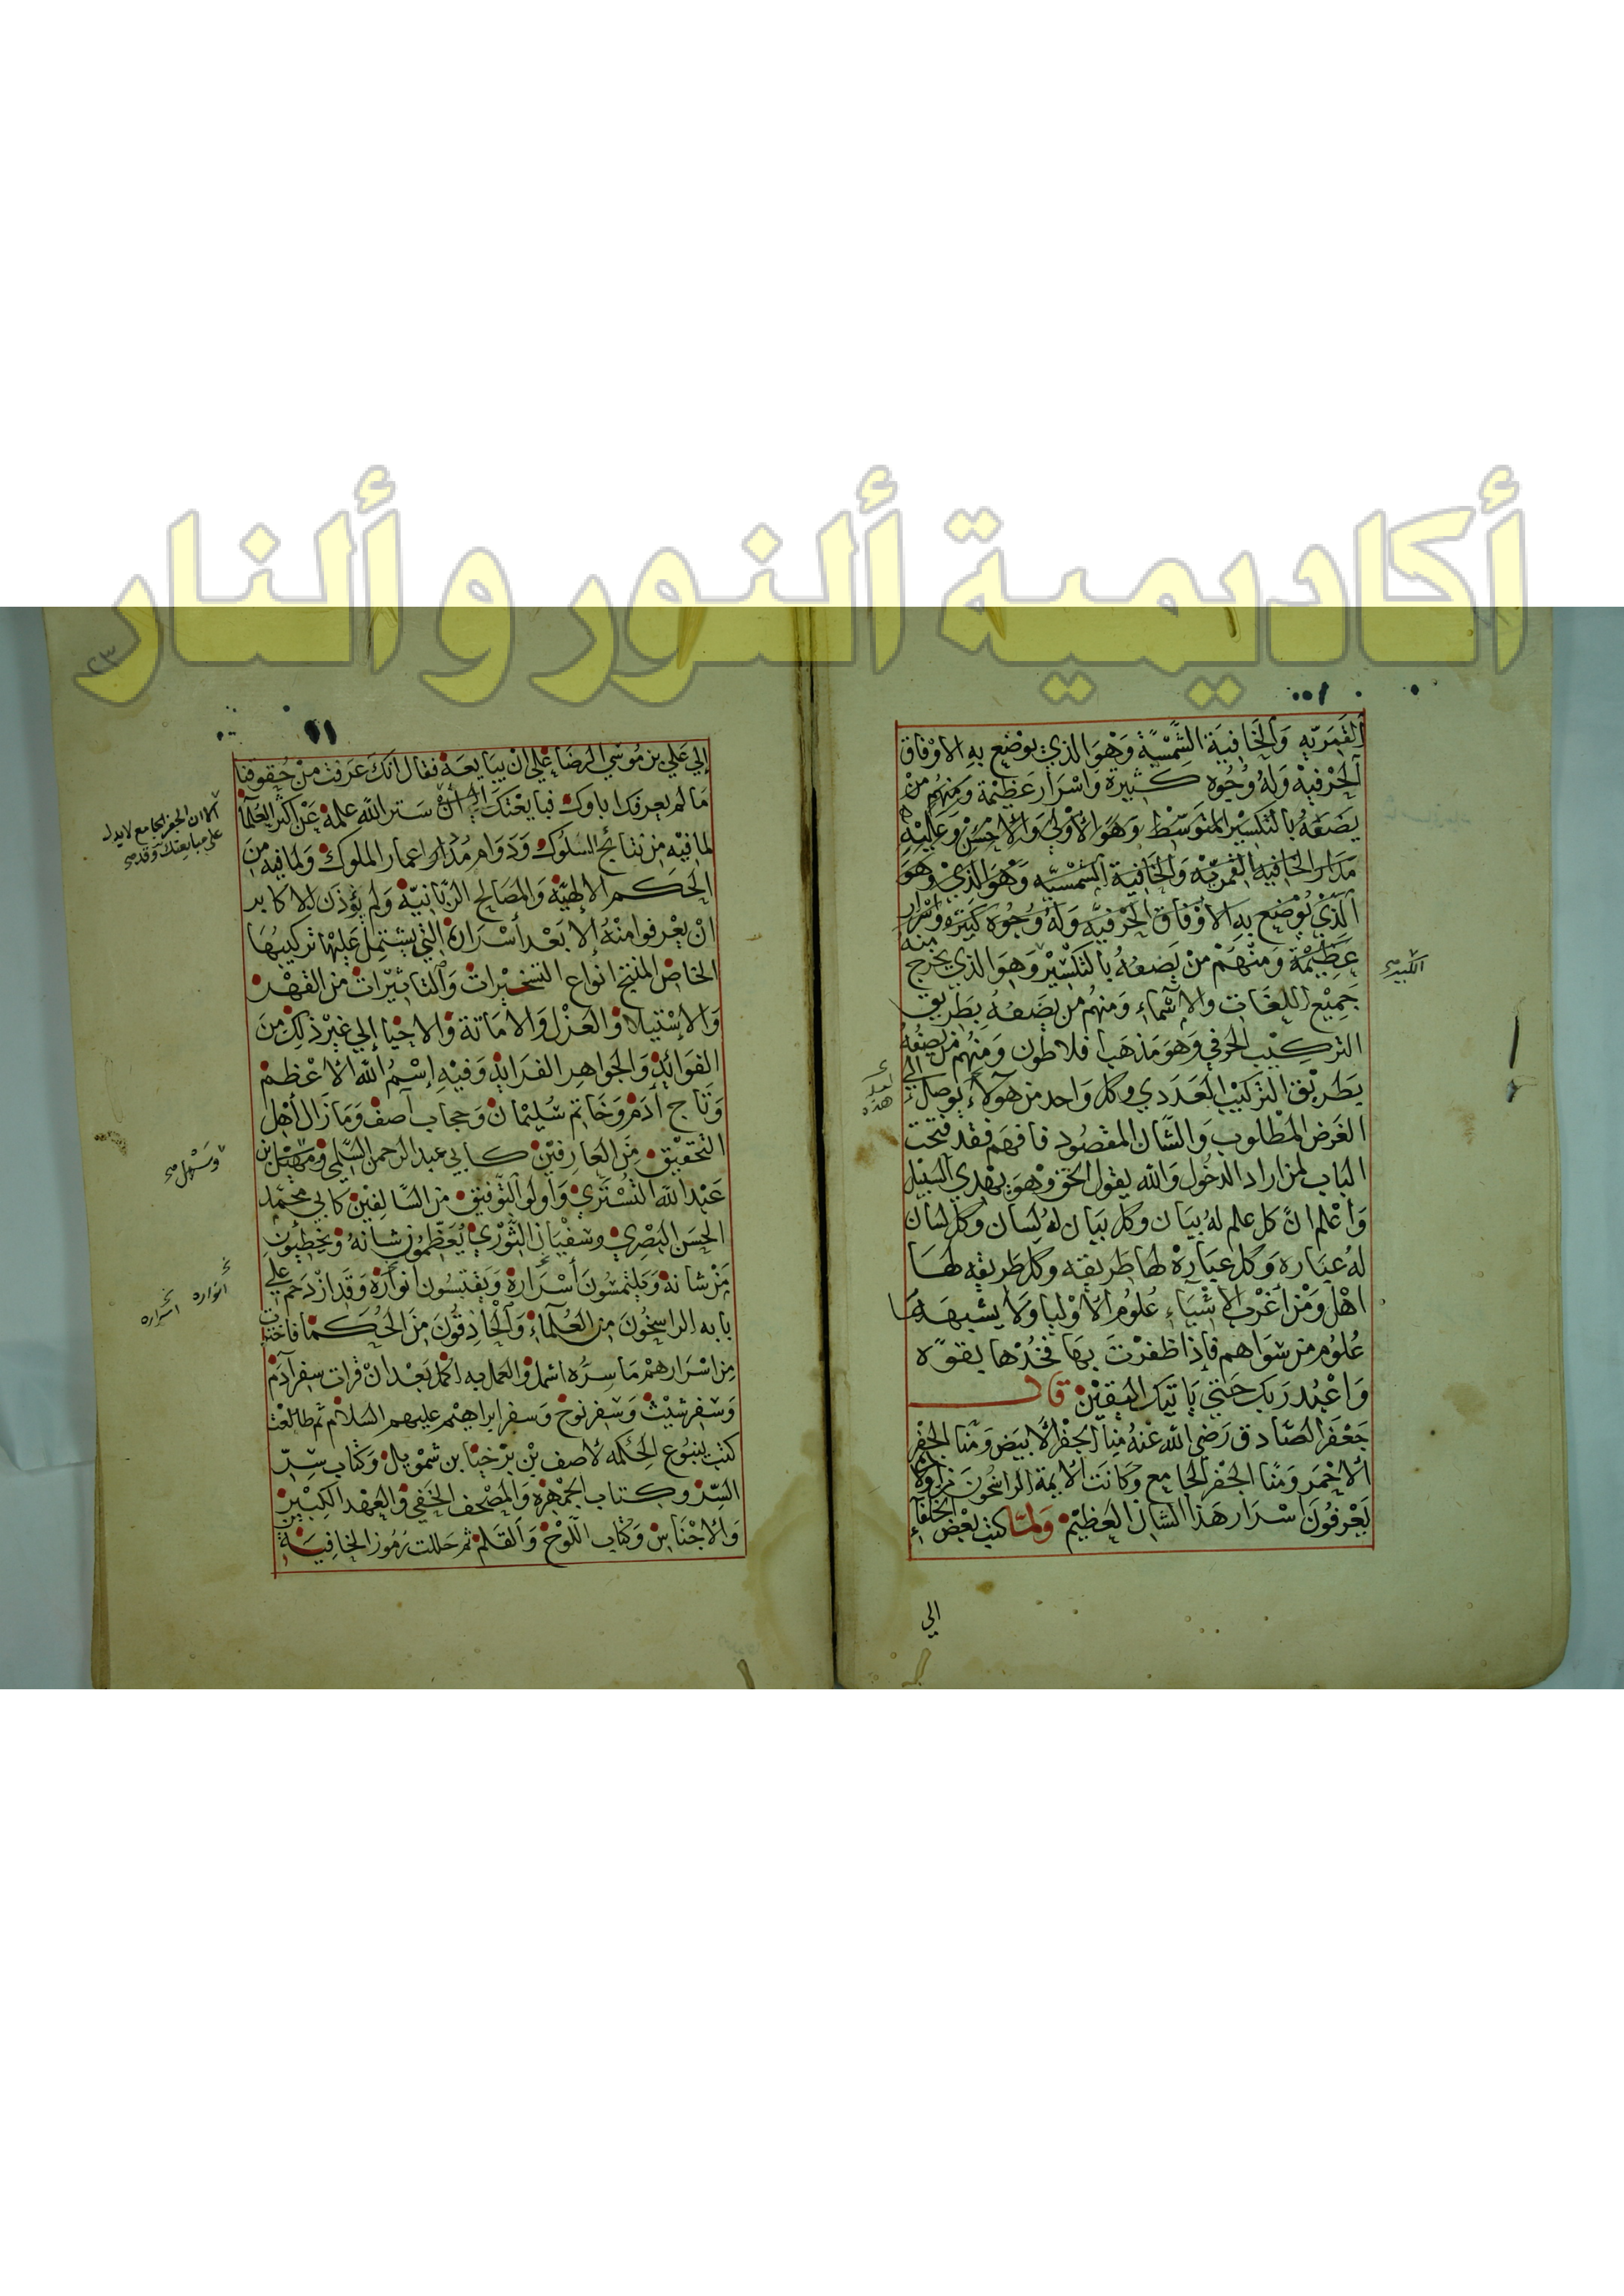 أكاديمية ألنور و ألنار
القمريه والخافية الشمسية وهو الذي يوضع به الاوفاق
الحرفيه وله وجوه كثيرة واسرار عظيمة ومنهم من
يضعه بالتكسير المتوسط وهو الأولي والأحسن وعليه
مدار الخافية القمرية والخافية الشمسيه وهو الذي وهو
الذي يوضع به الأوفاق الحرفيه وله وجوه كثيره واسرار
عظيمة ومنهم من يضعه بالتكسير وهو الذي يخرج منه
الكبير صح
جميع اللغات والاسماء ومنهم من يضعه بطريق
التركيب الحرفي وهو مذهب فلاطون ومنهم من يضعه
بطريق التركيب العددي وكل واحد من هولاء يوصل الي
هذه
الغرض المطلوب والشان المقصود فافهم فقد فتحت
الباب لمن اراد الدخول والله يقول الحق وهو يهدي السبيل
واعلم ان كل علم له بيان وكل بيان له لسان وكل لسان
له عباره وكل عبارة لها طريقه وكل طريقه لها
اهل ومن أغرب الاشياء علوم الأوليا ولا يشبهها
علوم من سواهم فإذا ظفرت بها فخذها بقوه
واعبد ربك حتي ياتيك اليقين قال
جعفر الصادق رضي الله عنه منا الجفر الأبيض ومنا الجفر
الأحمر ومنا الجفر الجامع وكانت الأيمة الراسخون من اولاده
يعرفون اسرار هذا الشان العظيم ولما كتب بعض الخلفاء
الي
٢٣
إلي علي بن موسي الرضا علي ان يبايعه فقال انك عرفت من حقوقنا
ما لم يعرفك اباوك فبايعتك الي أن ستر الله علمه عن اكثر العلما
الا ان الجفر الجامع لا يدل
علي مبايعتك وقد صح
لما فيه من نتائج السلوك ودوام مدار اعمار الملوك ولما فيه من
الحكم الالهية والمصالح الربانية ولم يؤذن للاكابر
ان يعرفوا منه إلا بعد أسراره التي يشتمل عليها تركيبها
الخاص المنتج انواع التسخيرات والتاثيرات من القهر
والاستيلا والعزل والاماتة والاحيا إلي غير ذلك من
الفوائد والجواهر الفرائد وفيه إسم الله الاعظم
وتاج آدم وخاتم سليمان وحجاب آصف وما زال أهل
التحقيق من العارفين كابي عبد الرحمن السلمي وسهل بن
وسهل صح
عبد الله التستري وأولو التوفيق من السالفين كابي محمد
الحسن البصري وسفيان الثوري يعظمون شانه ويخطبون
من شانه ويلتمسون أسراره ويقتبسون انواره وقد ازدحم علي
انواره اسراره
بابه الراسخون من العلماء والحاذقون من الحكما فاختبات
من اسرارهم ما سره اشمل والعمل به اكمل بعد ان قرات سفر آدم
وسفر شيث وسفر نوح وسفر ابراهيم عليهم السلام ثم طالعت
كتب ينبوع الحكمه لاصف بن برخيا بن شمويل وكتاب سر
السر وكتاب الجمهرة والمصحف الخفي والعهد الكبير
والأجناس وكتاب اللوح والقلم ثم حللت رموز الخافية